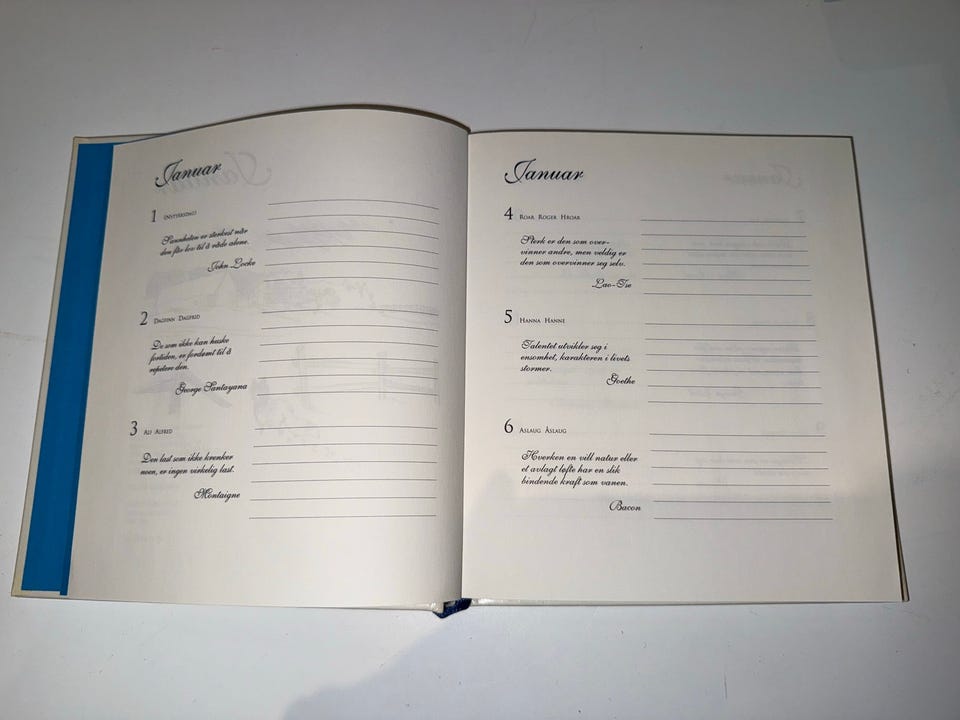 Januar
1 (Nyttårsdag)
Sannheten er sterkest når
den får lov til å råde alene.
John Locke
2 Dagfinn Dagfrid
De som ikke kan huske
fortiden, er fordømt til å
repetere den.
George Santayana
3 Alf Alfred
Den last som ikke krenker
noen, er ingen virkelig last.
Montaigne
Januar
4 Roar Roger Hroar
Sterk er den som over-
vinner andre, men veldig er
den som overvinner seg selv.
Lao-Tse
5 Hanna Hanne
Talentet utvikler seg i
ensomhet, karakteren i livets
stormer.
Goethe
6 Aslaug Åslaug
Hverken en vill natur eller
et avlagt løfte har en slik
bindende kraft som vanen.
Bacon